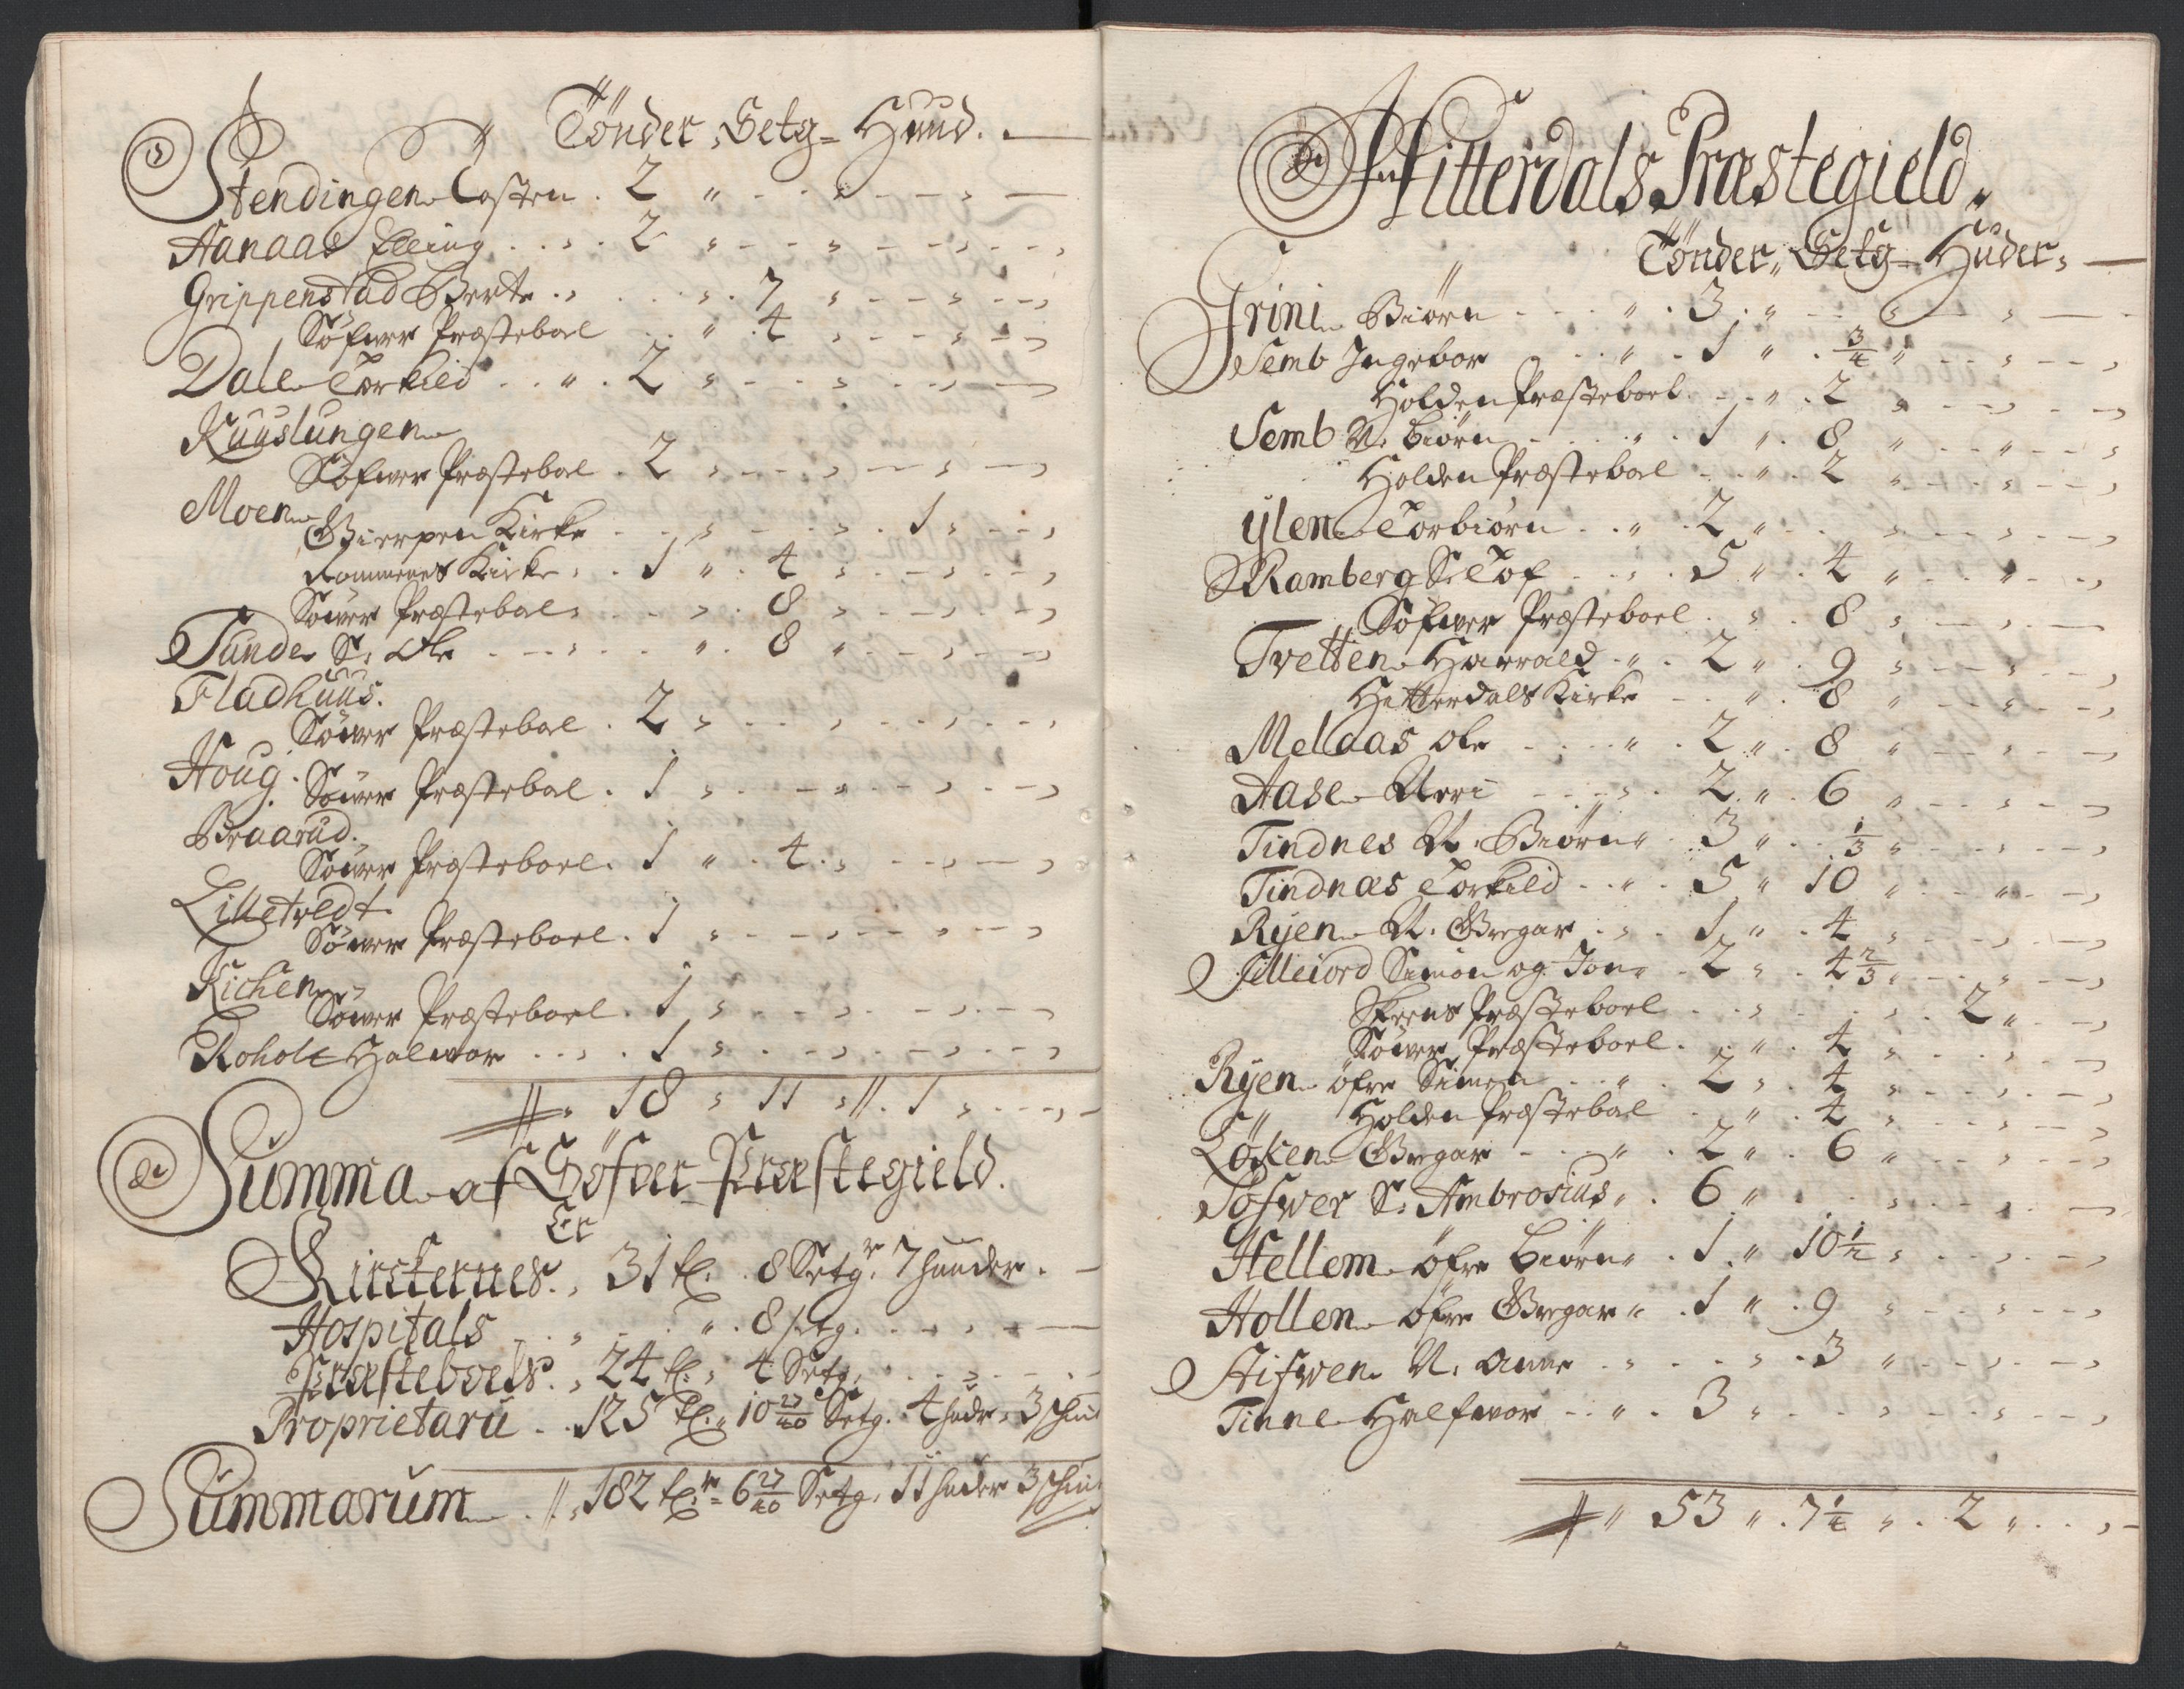 Tönder, Setg= Huud.
Stendingen Costen . 2 "
Aanaas Elling . . 2
Grippenstad Berte . . 7
Söfver Præstebol . . 4
Dale Torkild . . 2
Kuuslungen
Söfver Præstebol . 2
Moen
Gierpen Kirke . . 1
Rommenes Kirke . . 1 " . 4
Söuer Præstebol . . 8
Sunde S. Ole . . 8
Fladhuus.
Söuer Præstebol . 2
Houg.
Söuer Præstebol . 1
Braarud.
Söuer Præsteboel . 1 " . 4
Lilletvedt
Söuer Præsteboel . 1
Kichen
Söuer Præsteboel . 1
Roholt Halvor . . 1
18 " 11 " 1
Summa af Söfver Præstegield.
Er
Kirkernes . 31 tl. 8 Setg. 7 huuder.
Hospitals " . 8 setg.
Præsteboels . 24 tl. 4 Setg.
Proprietarii . 125 tl. 10 27/40 Setg. 4 hudr. 3 schin
Summarum . 182 tlr. 6 27/40 Setg. 11 huder 3 schin
Hitterdals Præstegield.
Tönder, Setg= Huder,
Grini Biörn . . 3
Semb Ingebor . . 1 " 3/4
Holden Præsteboel . . 2
Semb N. Biörn . . 1 " 8
Holden Præstebol . . 2
Ylen Torbiörn . . 2
Ramberg S. Tof . . 5 " . 4
Söfver Præsteboel . . 8
Tvetten Harrald . . 2 " . 9
Hitterdals Kirke . . 8
Melaas Ole . . 2 " . 8
Aase Anri . . 2 " . 6
Tindnes N. Biörn . 3 " 1/3
Tindnæs Torkild . . 5 " 10
Ryen N. Gregar . . 1 " . 4
Silleiord Simon og Jon . 2 " . 4 2/3
Skeens Præsteboel . . 2
Söuer Præsteboel . . 4
Ryen öfre Simen . . 2 . 4
Holden Præstebol . . 4
Löken Gregar . . 2 " . 6
Sofver S. Ambrosius . . 6
Hellem öfre Biörn . 1 " 10 1/2
Hollen öfre Gregar . 1 " . 9
Stifven N. Anne . . 3
Tinne Halfvor . . 3
" 53 " . 7 1/4 " . 2